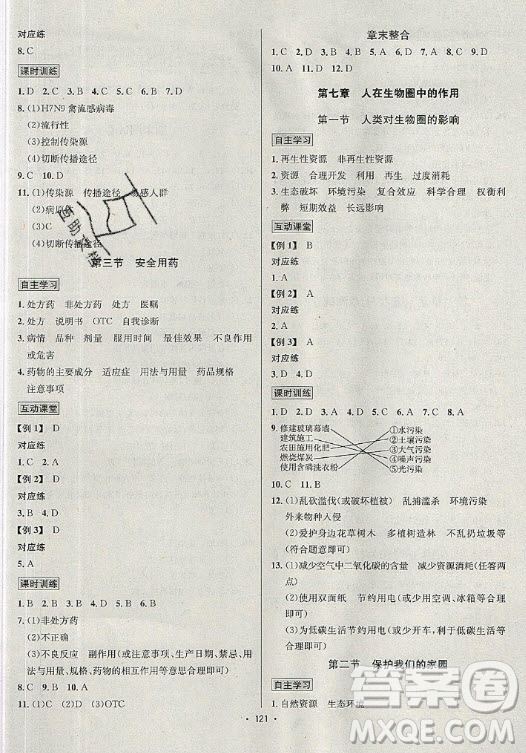 对应练
8. C
课时训练
1. D  2. D  3. D  4. D  5. A  6. B  7. B
8. (1)H7N9 禽流感病毒
(2)流行性
(3)控制传染源
(4)切断传播途径
9. C  10. D
11. (1)传染源  传播途径  易感人群
(2)病原体
(3)
(4)切断传播途径
第三节  安全用药
自主学习
1. 处方药  非处方药  处方  医嘱
2. 处方  说明书  OTC  自我诊断
3. 病情  品种  剂量  服用时间  最佳效果  不良作用
或危害
4. 药物的主要成分  适应症  用法与用量  药品规格
注意事项
互动课堂
【例 1】 D
对应练
1. C  2. A
【例 2】 D
对应练
3. D
【例 3】 D
对应练
4. D
课时训练
1. B  2. B  3. B  4. D  5. D  6. B
7. (1)非处方药
(2)不正确
(3)不良反应  副作用(或注意事项、生产日期、禁忌、
用法与用量、规格、药物的相互作用等意思合理即可)
8. C  9. C  10. D
11. (1)C  (2)D  (3)OTC
章末整合
1. C  2. C  3. D  4. C  5. D  6. D  7. D  8. D  9. D
10. A  11. D
第七章  人在生物圈中的作用
第一节  人类对生物圈的影响
自主学习
1. 再生性资源  非再生性资源
2. 资源  合理开发  再生  过度消耗
3. 生态破坏  环境污染  复合效应  科学合理  权衡利
弊  短期效益  长远影响
互动课堂
【例 1】 D
对应练
1. C  2. D
【例 2】 A
对应练
3. D
【例 3】 A
对应练
4. D
课时训练
1. D  2. D  3. C  4. D  5. D  6. D  7. A  8. D
9. 修建玻璃幕墙  ①水污染
建筑施工  ②土壤污染
农田施用化肥  ③大气污染
燃烧煤炭  ④噪声污染
使用含磷洗衣粉  ⑤光污染
10. C  11. C
12. (1)乱砍滥伐(或破坏植被)  乱捕滥杀  环境污染
外来物种入侵
(2)爱护身边花草树木  多植树造林  不乱扔垃圾等
(符合题意即可)
13. (1)减少空气中二氧化碳的含量  (2)减少资源消耗
(3)使用双面纸  节约用电(或少用电梯、少用空调等
意思合理即可)
(4)为低碳生活节约用电(或少开车,利于低碳生活等
意思合理即可)
第二节  保护我们的家园
自主学习
1. 自然资源  生态环境
· 121 ·
答案圈
MXQE.COM